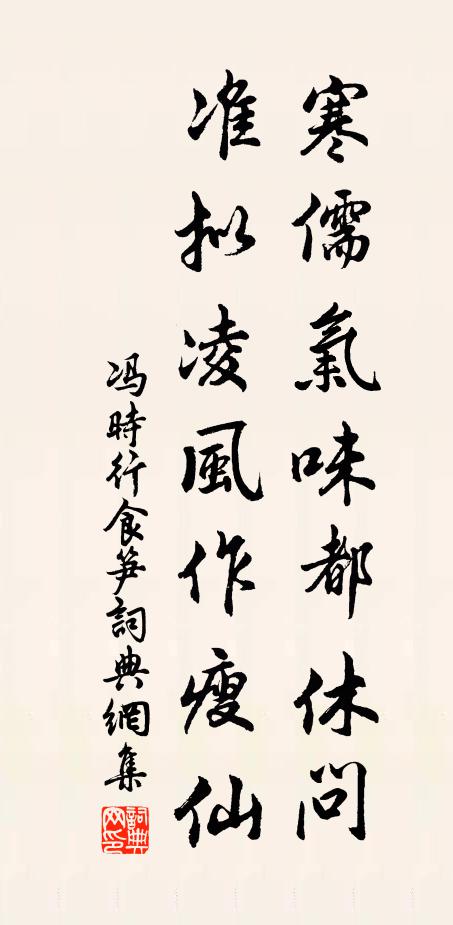 寒儒氣味都休問
准拟凌風作瘦仙
冯時行食笋詞典網集
詞典网印